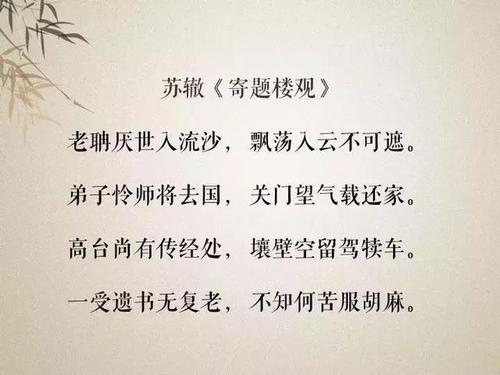 苏辙《寄题楼观》
老聃厌世入流沙，飘荡入云不可遮。
弟子怜师将去国，关门望气载还家。
高台尚有传经处，壤壁空留驾犊车。
一受遗书无复老，不知何苦服胡麻。